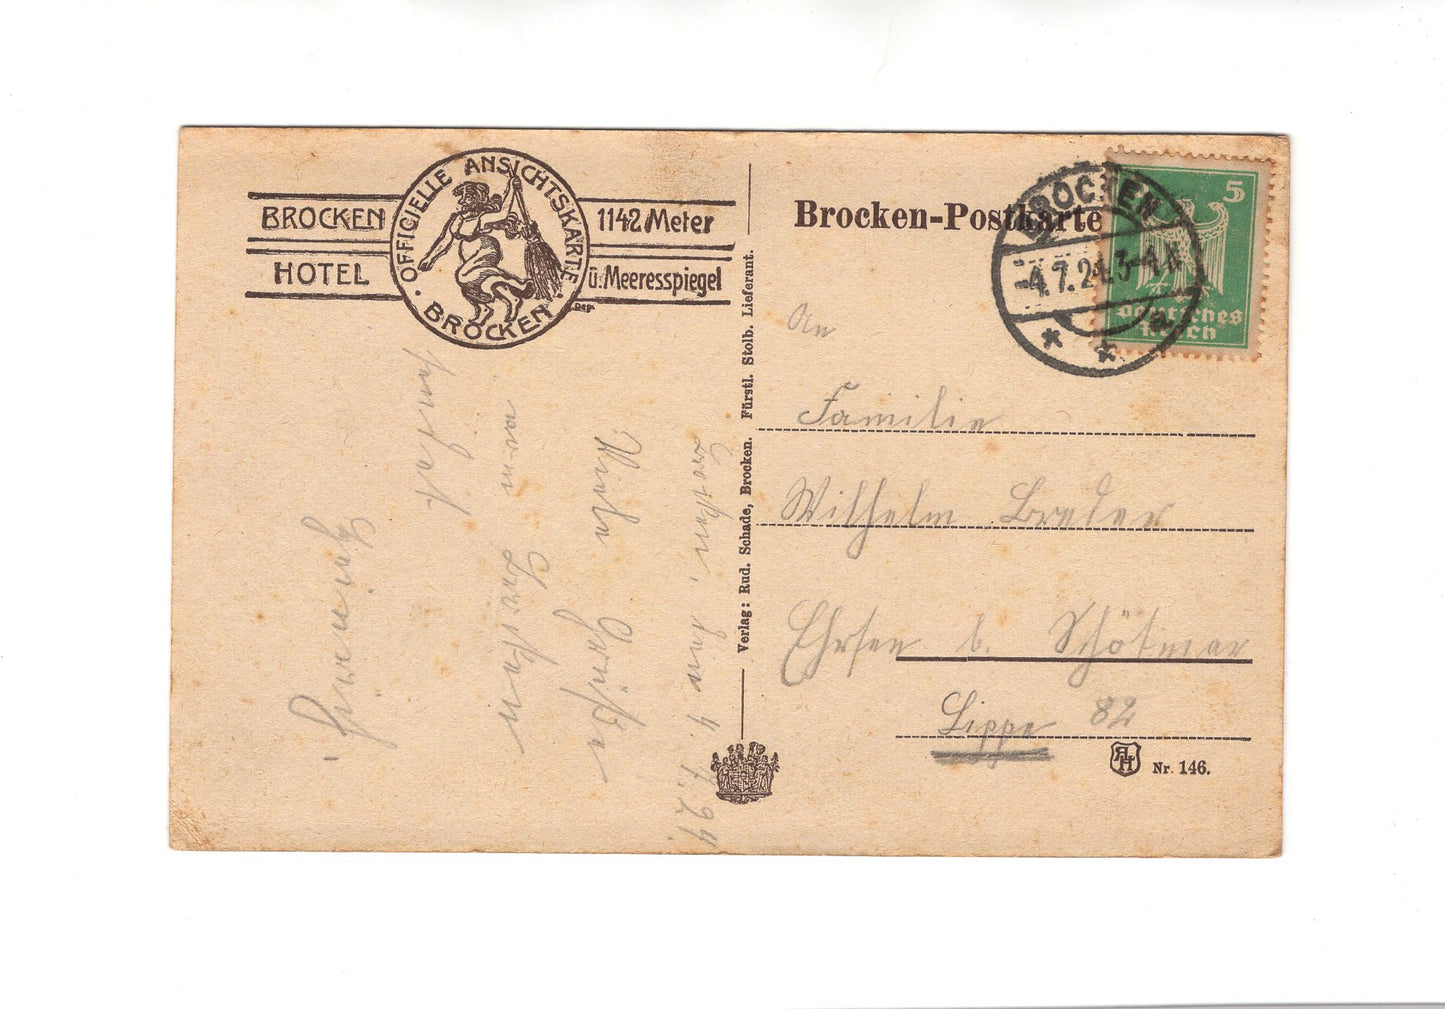 BROCKEN
HOTEL
· OFFICIELLE ANSICHTSKARTE ·
BROCKEN
1142 Meter
ü. Meeresspiegel
Brocken-Postkarte
BROCKEN
-4.7.24. 3-4
* *
5
Deutsches
Reich
Verlag: Rud. Schade, Brocken. Fürstl. Stolb. Lieferant.
Brocken, den 4. 7. 24.
Viele Grüße
vom Brocken
sendet
An
Familie
Wilhelm Breder
Ehrsen b. Schötmar
Lippe 82
Nr. 146.